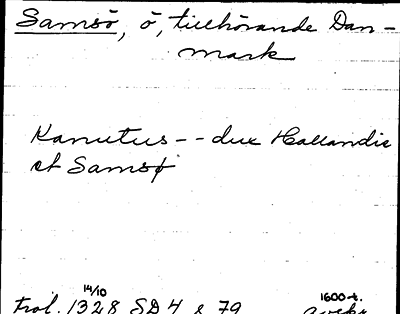 Samsö, ö, tillhörande Dan-
mark
Kanutus -- dux Hallandie
et Samsø
14/10 1600-t.
Trol. 1328 SD 4 s 79 avskr